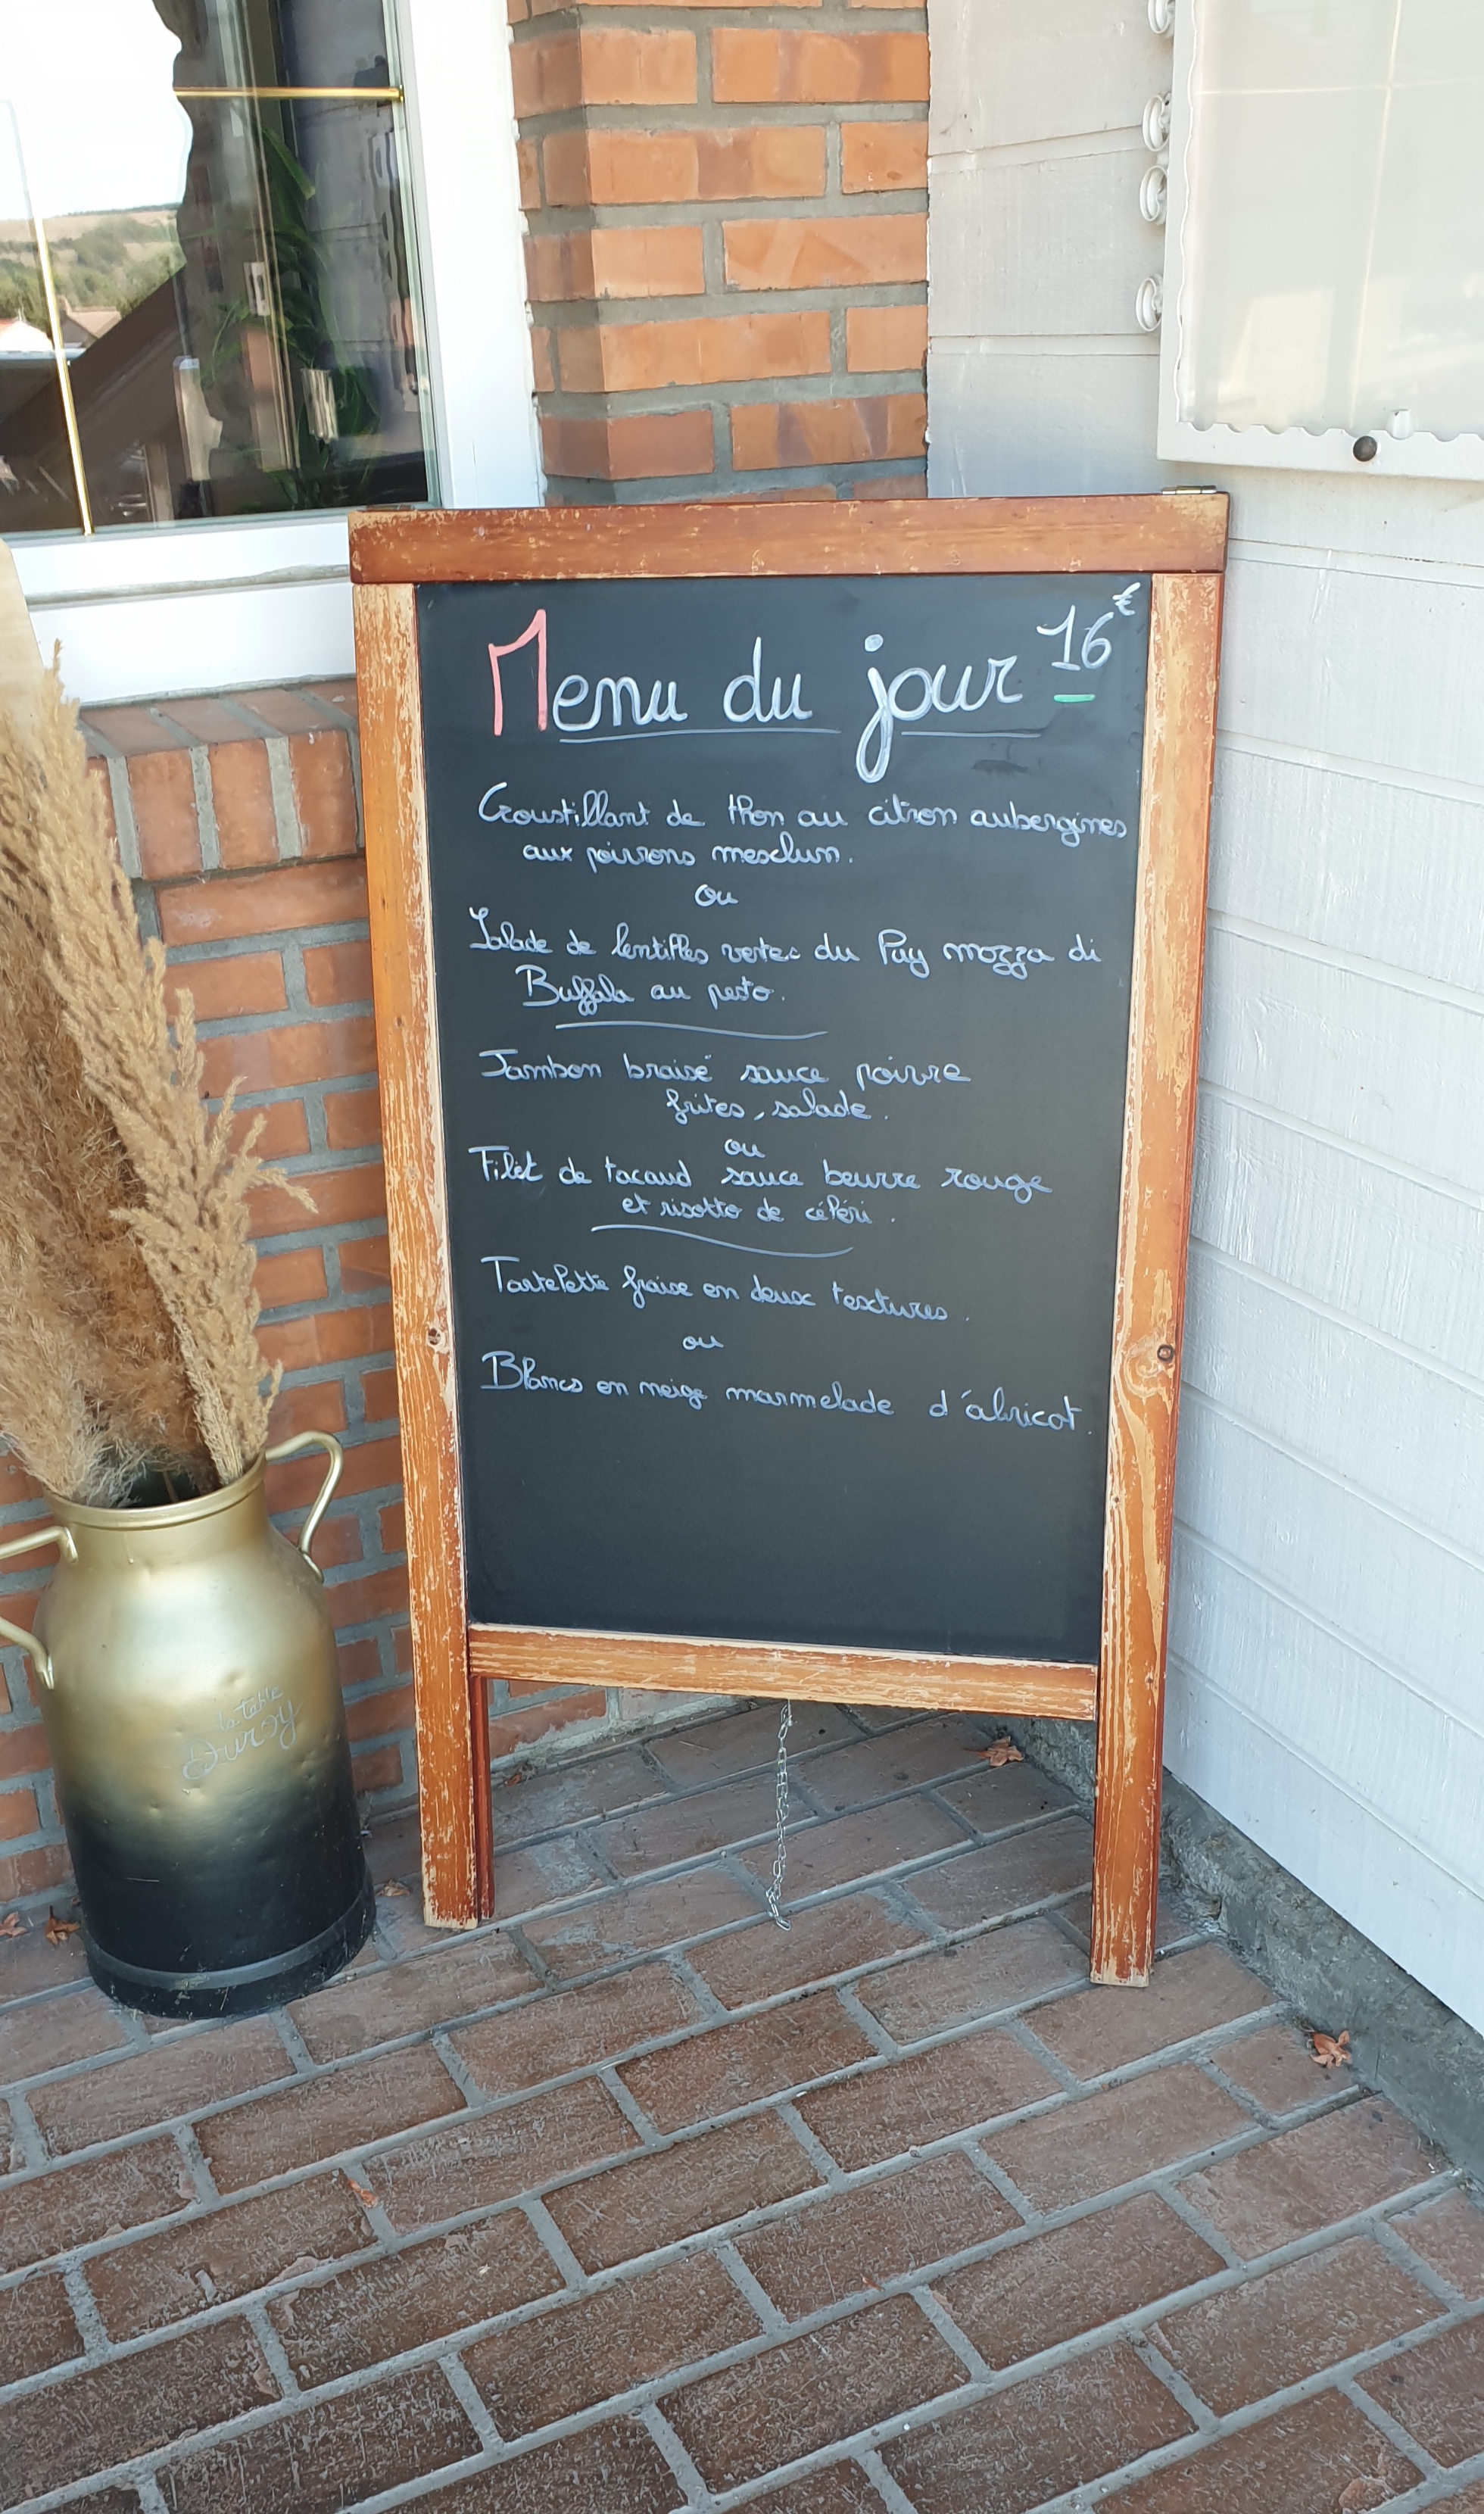 Menu du jour 16€
Croustillant de thon au citron aubergines
aux poivrons mesclun.
ou
Salade de lentilles vertes du Puy mozza di
Buffala au pesto.
Jambon braisé sauce poivre
frites, salade.
ou
Filet de tacaud sauce beurre rouge
et risotto de céléri.
Tartelette fraise en deux textures.
ou
Blancs en neige marmelade d'abricot.
la table
Duroy